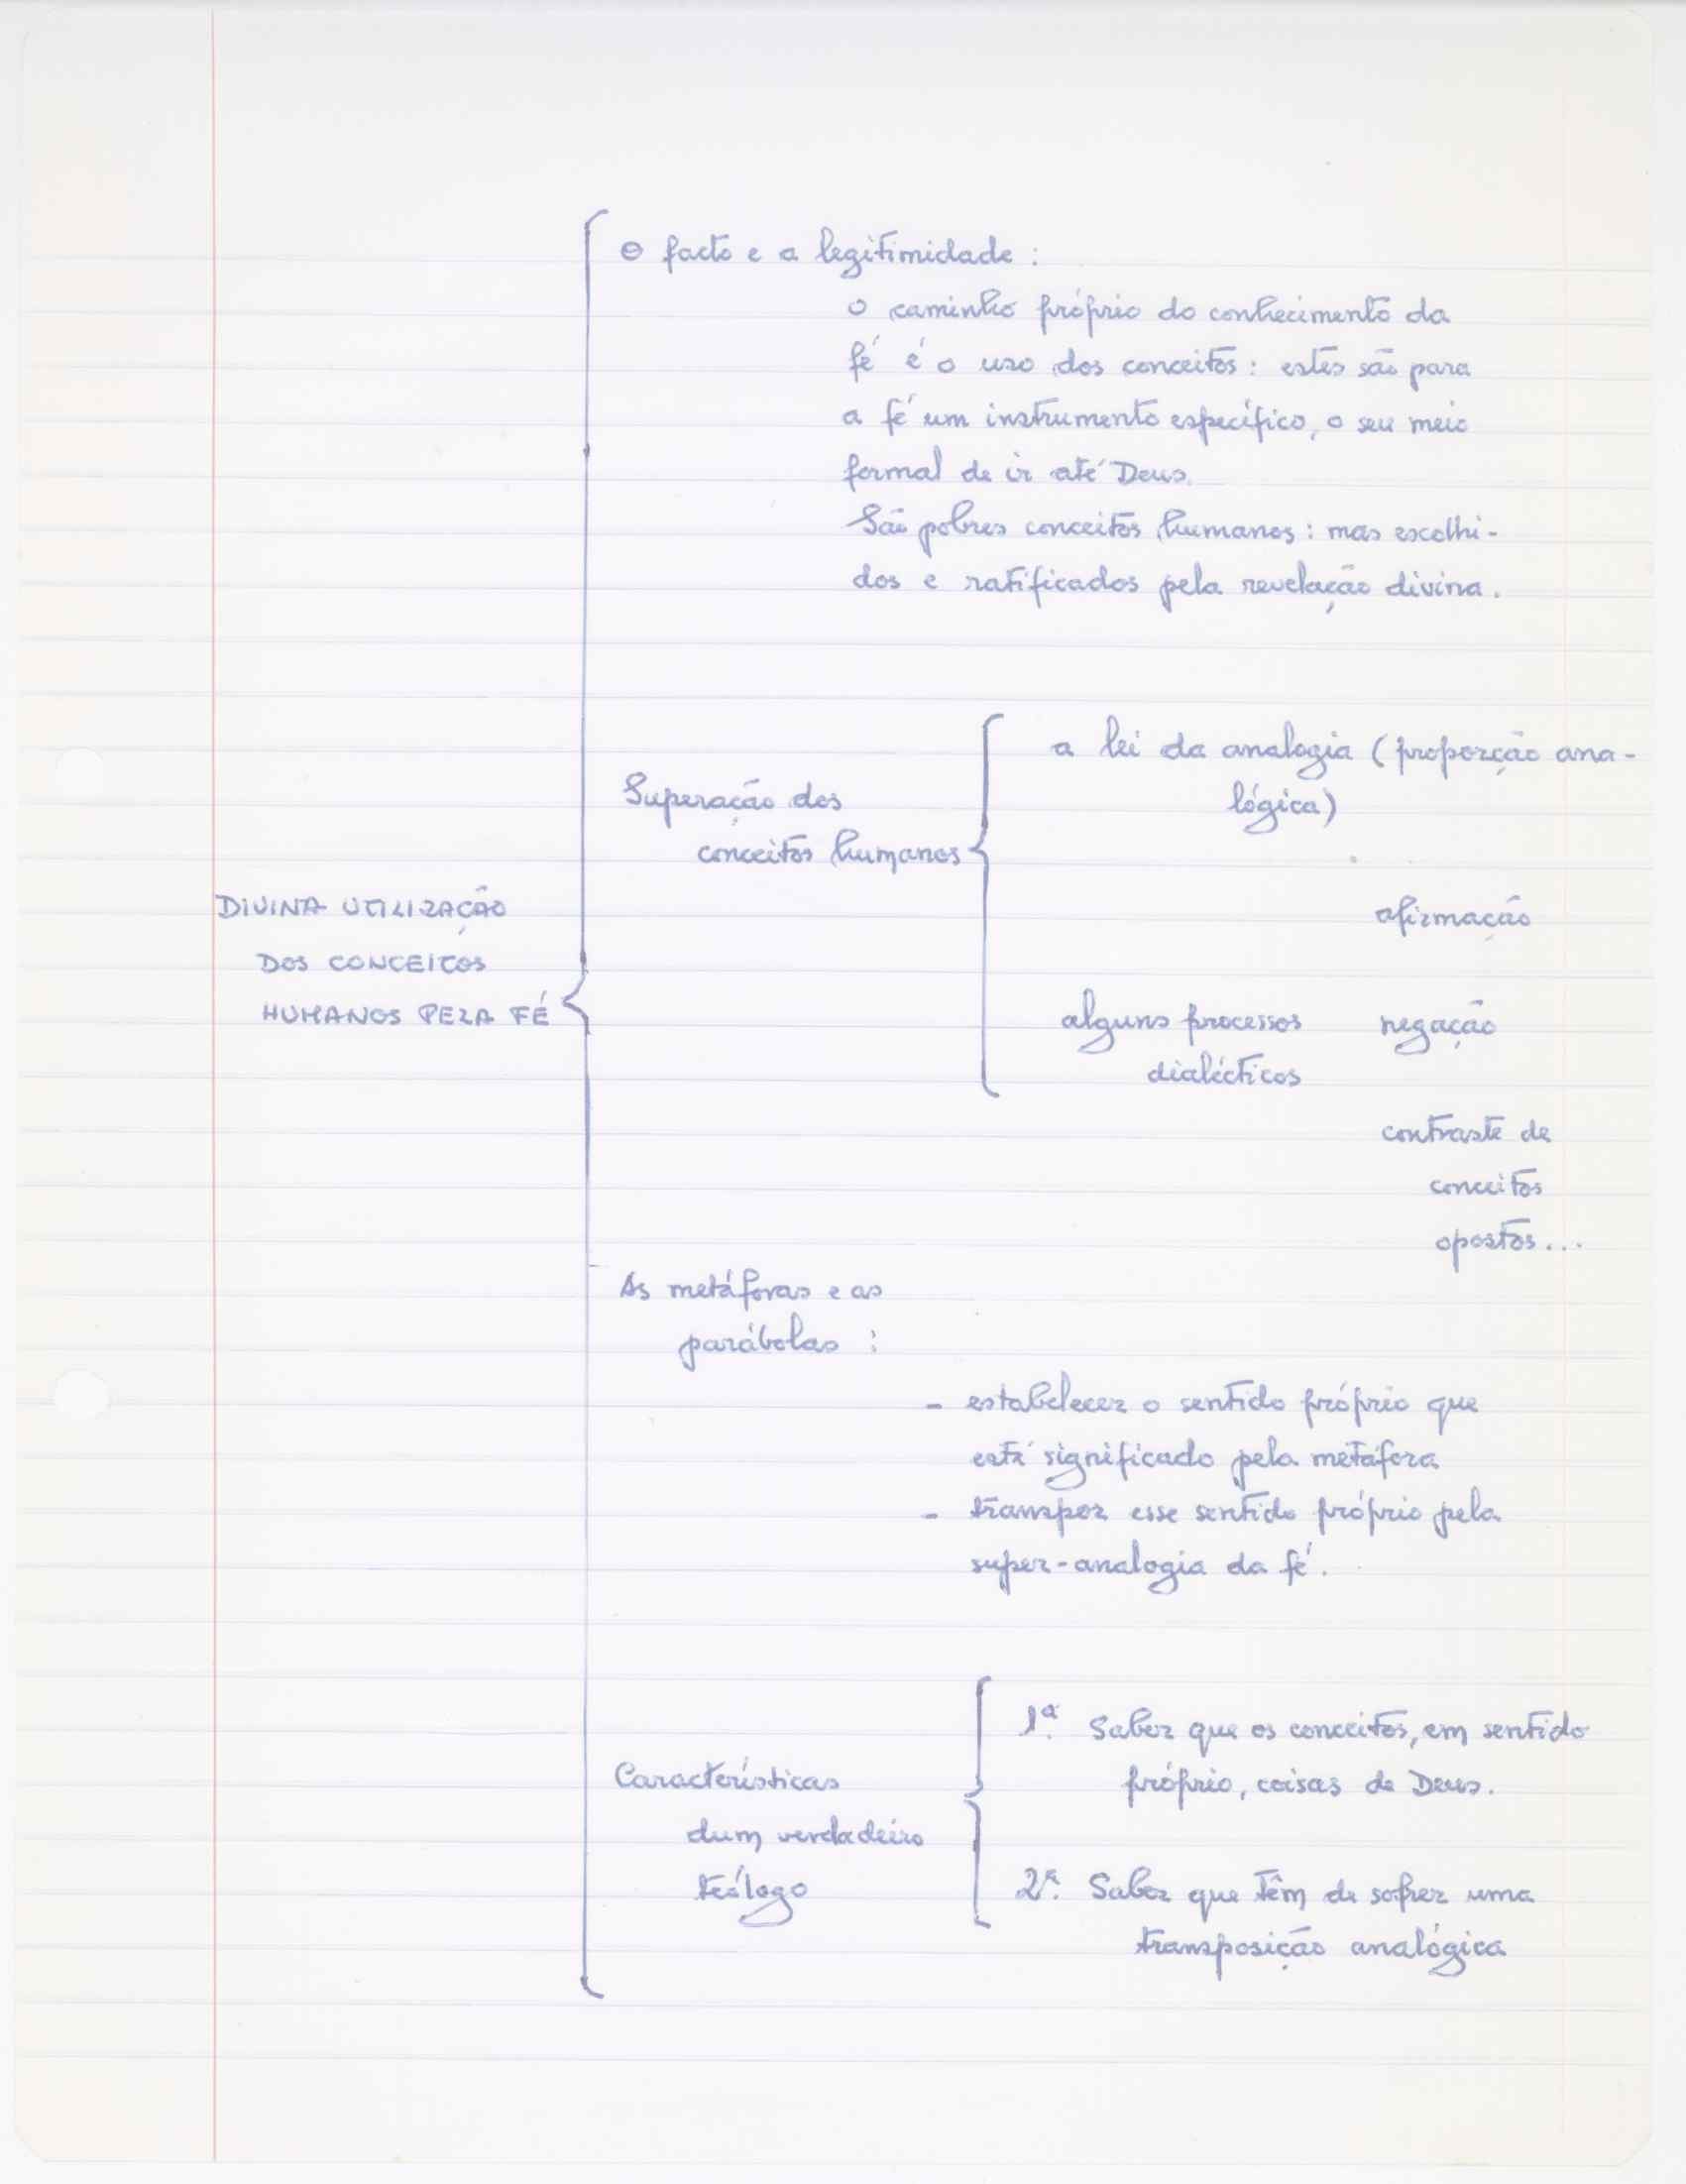 O facto e a legitimidade :
o caminho próprio do conhecimento da
fé é o uso dos conceitos : estes são para
a fé um instrumento específico, o seu meio
formal de ir até Deus.
São pobres conceitos humanos : mas escolhi-
dos e ratificados pela revelação divina.
a lei da analogia (proporção ana-
lógica)
Superação dos
conceitos humanos
DIVINA UTILIZAÇÃO
DOS CONCEITOS
HUMANOS PELA FÉ
afirmação
alguns processos
dialécticos
negação
contraste de
conceitos
opostos...
As metáforas e as
parábolas :
- estabelecer o sentido próprio que
está significado pela metáfora
- transpor esse sentido próprio pela
super-analogia da fé.
Características
dum verdadeiro
teólogo
1ª. Saber que os conceitos, em sentido
próprio, coisas de Deus.
2ª. Saber que têm de sofrer uma
transposição analógica